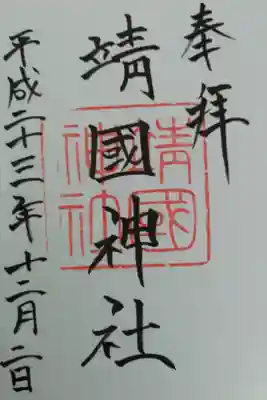 奉拝
靖國神社
靖國神社
平成二十三年十二月二日